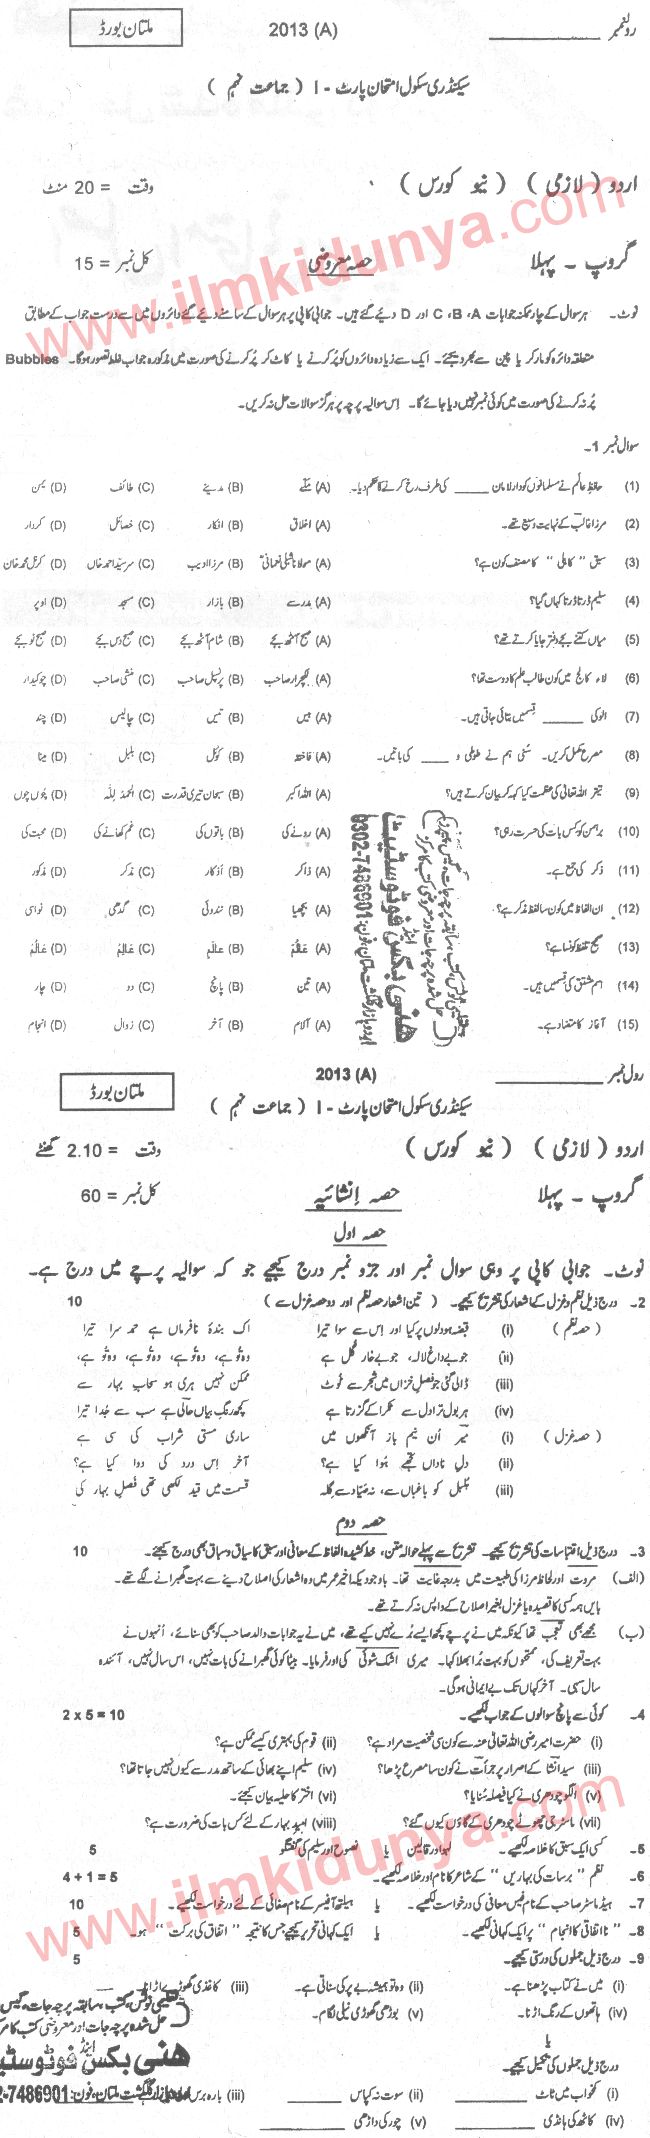 رولنمبر ________ 2013 (A) ملتان بورڈ
سیکنڈری سکول امتحان پارٹ - I ( جماعت نہم )
اردو ( لازمی ) ( نیو کورس ) وقت = 20 منٹ
گروپ - پہلا حصہ معروضی کل نمبر = 15
نوٹ۔ ہر سوال کے چار ممکنہ جوابات A، B، C اور D دیئے گئے ہیں۔ جوابی کاپی پر ہر سوال کے سامنے دیئے گئے دائروں میں سے درست جواب کے مطابق
متعلقہ دائرہ کو مارکر یا پین سے بھر دیجئے۔ ایک سے زیادہ دائروں کو پُر کرنے یا کاٹ کر پُر کرنے کی صورت میں مذکورہ جواب غلط تصور ہوگا۔ Bubbles
پُر نہ کرنے کی صورت میں کوئی نمبر نہیں دیا جائے گا۔ اِس سوالیہ پرچہ پر ہرگز سوالات حل نہ کریں۔
سوال نمبر 1۔
(1) حافظِ عالم نے مسلمانوں کو دارلامان ____ کی طرف رخ کرنے کا حکم دیا۔ (A) مکّے (B) مدینے (C) طائف (D) یمن
(2) مرزا غالب کے نہایت وسیع تھے۔ (A) اخلاق (B) افکار (C) خصائل (D) کردار
(3) سبق " کاہلی " کا مصنف کون ہے؟ (A) مولانا شبلی نعمانی (B) مرزا ادیب (C) سر سیّد احمد خاں (D) کرنل محمد خان
(4) سلیم ڈرتا ڈرتا کہاں گیا؟ (A) مدرسے (B) بازار (C) مسجد (D) اوپر
(5) میاں کتنے بجے دفتر جایا کرتے تھے؟ (A) صبح آٹھ بجے (B) شام آٹھ بجے (C) صبح دس بجے (D) صبح نو بجے
(6) لاء کالج میں کون طالب علم کا دوست تھا؟ (A) لیکچرار صاحب (B) پرنسپل صاحب (C) منشی صاحب (D) چوکیدار
(7) الّو کی ____ قسمیں بتائی جاتی ہیں۔ (A) بیس (B) تیس (C) چالیس (D) چند
(8) مصرع مکمل کریں۔ سُنی ہم نے طوطی و ____ کی باتیں۔ (A) فاختہ (B) کوئل (C) بلبل (D) مینا
(9) تیتر اللہ تعالیٰ کی عظمت کیا کہہ کر بیان کرتے ہیں؟ (A) اللہ اکبر (B) سبحان تیری قدرت (C) الحمدُ للہ (D) چوں چوں
(10) برہمن کو کس بات کی حسرت رہی؟ (A) رونے کی (B) باتوں کی (C) غم کھانے کی (D) محبت کی
(11) ذکر کی جمع ہے۔ (A) ذاکر (B) اذکار (C) مذکر (D) مذکور
(12) ان الفاظ میں کون سا لفظ مذکر ہے؟ (A) بچھیا (B) نندوئی (C) گدھی (D) نواسی
(13) صحیح تلفظ کونسا ہے؟
(14) اسم مشتق کی قسمیں ہیں۔ (A) تین (B) پانچ (C) دو (D) چار
(15) آغاز کا متضاد ہے۔ (A) آلام (B) آخر (C) زوال (D) انجام
ہنی بکس اینڈ فوٹوسٹیٹ
0302-7486901
رول نمبر ________ 2013 (A) ملتان بورڈ
سیکنڈری سکول امتحان پارٹ - I ( جماعت نہم )
اردو ( لازمی ) ( نیو کورس ) وقت = 2.10 گھنٹے
گروپ - پہلا حصہ اِنشائیہ کل نمبر = 60
حصہ اول
نوٹ۔ جوابی کاپی پر وہی سوال نمبر اور جزو نمبر درج کیجیے جو کہ سوالیہ پرچے میں درج ہے۔
2۔ درج ذیل نظم و غزل کے اشعار کی تشریح کیجیے۔ ( تین اشعار حصہ نظم اور دو حصہ غزل سے ) 10
( حصہ نظم ) (i) قبضہ ہو دلوں پر کیا اور اِس سے سوا تیرا اک بندۂ نافرماں ہے حمد سرا تیرا
(ii) جو بے داغ لالہ، جو بے خار گل ہے وہ تُو ہے، وہ تُو ہے، وہ تُو ہے، وہ تُو ہے،
(iii) ڈالی گئی جو فصلِ خزاں میں شجر سے ٹوٹ ممکن نہیں ہری ہو سحابِ بہار سے
(iv) ہر بول ترا دل سے ٹکرا کے گزرتا ہے کچھ رنگِ بیاں حالی ہے سب سے جُدا تیرا
( حصہ غزل ) (i) میر اُن نیم باز آنکھوں میں ساری مستی شراب کی سی ہے
(ii) دلِ ناداں تجھے ہُوا کیا ہے؟ آخر اِس درد کی دوا کیا ہے؟
(iii) بُلبل کو باغباں سے، نہ صیّاد سے گلہ قسمت میں قید لکھی تھی فصلِ بہار کی
حصہ دوم
3۔ درج ذیل اقتباسات کی تشریح کیجیے۔ تشریح سے پہلے حوالہ متن، خط کشیدہ الفاظ کے معانی اور سبق کا سیاق و سباق بھی درج کیجئے۔ 10
(الف) مروت اور لحاظ مرزا کی طبیعت میں بدرجہ غایت تھا۔ باوجود یکہ اخیر عمر میں وہ اشعار کی اصلاح دینے سے بہت گھبرانے لگے تھے۔
بایں ہمہ کسی کا قصیدہ یا غزل بغیر اصلاح کے واپس نہ کرتے تھے۔
(ب) مجھے بھی تعجب تھا کیونکہ میں نے پرچے کچھ ایسے بُرے نہیں کیے تھے، میں نے یہ جوابات والد صاحب کو بھی سنائے، اُنہوں نے
بہت تعریف کی، ممتحنوں کو بہت بُرا بھلا کہا۔ میری اشک شوئی کی اور فرمایا۔ بیٹا کوئی گھبرانے کی بات نہیں، اس سال نہیں، آئندہ
سال سہی۔ آخر کہاں تک بے ایمانی ہوگی۔
4۔ کوئی سے پانچ سوالوں کے جواب لکھیے۔ 2 x 5 = 10
(i) حضرت امیر رضی اللہ تعالیٰ عنہ سے کون سی شخصیت مراد ہے؟ (ii) قوم کی بہتری کیسے ممکن ہے؟
(iii) سید انشا کے اصرار پر جرأت نے کون سا مصرع پڑھا؟ (iv) سلیم اپنے بھائی کے ساتھ مدرسے کیوں نہیں جاتا تھا؟
(v) الگو چودھری نے کیا فیصلہ سُنایا؟ (vi) اختر کا حلیہ بیان کیجئے۔
(vii) ماسٹر جی چھوٹے چودھری کے گاؤں کیوں گئے؟ (viii) امید بہار کے لئے کس بات کی ضرورت ہے؟
5۔ کسی ایک سبق کا خلاصہ لکھیے۔ لہو اور قالین یا نصوح اور سلیم کی گفتگو 5
6۔ نظم " برسات کی بہاریں " کے شاعر کا نام اور خلاصہ لکھیے۔ 4 + 1 = 5
7۔ ہیڈ ماسٹر صاحب کے نام فیس معافی کی درخواست لکھیے۔ یا ہیلتھ آفیسر کے نام صفائی کے لئے درخواست لکھیے۔ 10
8۔ " نااتفاقی کا انجام " پر ایک کہانی لکھیے۔ یا ایک کہانی تحریر کیجیے جس کا نتیجہ " اتفاق کی برکت " ہو۔ 5
9۔ درج ذیل جملوں کی درستی کیجیے۔ 5
(i) میں نے کتاب پڑھنا ہے۔ (ii) وہ تو ہمیشہ بے پر کی سناتی ہے۔ (iii) کاغذی گھوڑے اڑانا۔
(iv) ہاتھوں کے رنگ اڑنا۔ (v) بوڑھی گھوڑی نیلی لگام۔
یا
درج ذیل جملوں کی تکمیل کیجیے۔
(i) کمخواب میں ٹاٹ ____ (ii) سوت نہ کپاس ____ (iii) بارہ برس
(iv) کاٹھ کی ہانڈی ____ (v) چور کی داڑھی ____
ہنی بکس اینڈ فوٹوسٹیٹ
www.ilmkidunya.com
www.ilmkidunya.com